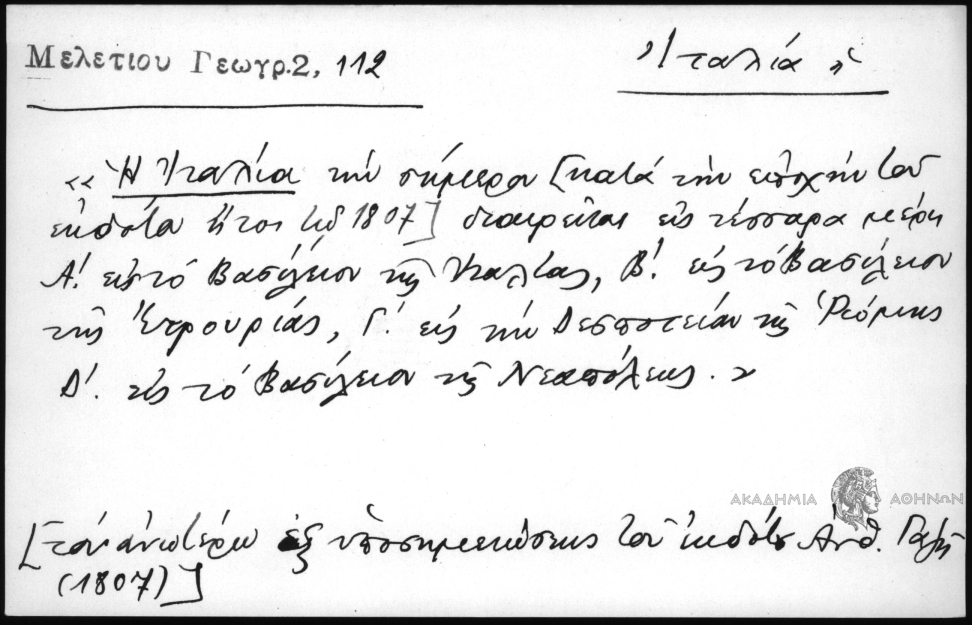 Μελετιου Γεωγρ.2, 112
Ἰταλία, ἡ
«Ἡ Ἰταλία τὴν σήμερον [κατὰ τὴν ἐποχὴν τοῦ
ἐκδότου ἤτοι τῷ 1807] διαιρεῖται εἰς τέσσαρα μέρη
Α΄. εἰς τὸ Βασίλειον τῆς Ἰταλίας, Β΄. εἰς τὸ Βασίλειον
τῆς Ἑτρουρίας, Γ΄. εἰς τὴν Δεσποτείαν τῆς Ῥώμης
Δ΄. εἰς τὸ Βασίλειον τῆς Νεαπόλεως.»
ΑΚΑΔΗΜΙΑ ΑΘΗΝΩΝ
[τὸ ἀνωτέρω ἐξ ὑποσημειώσεως τοῦ ἐκδότου Ανθ. Γαζῆ
(1807)]